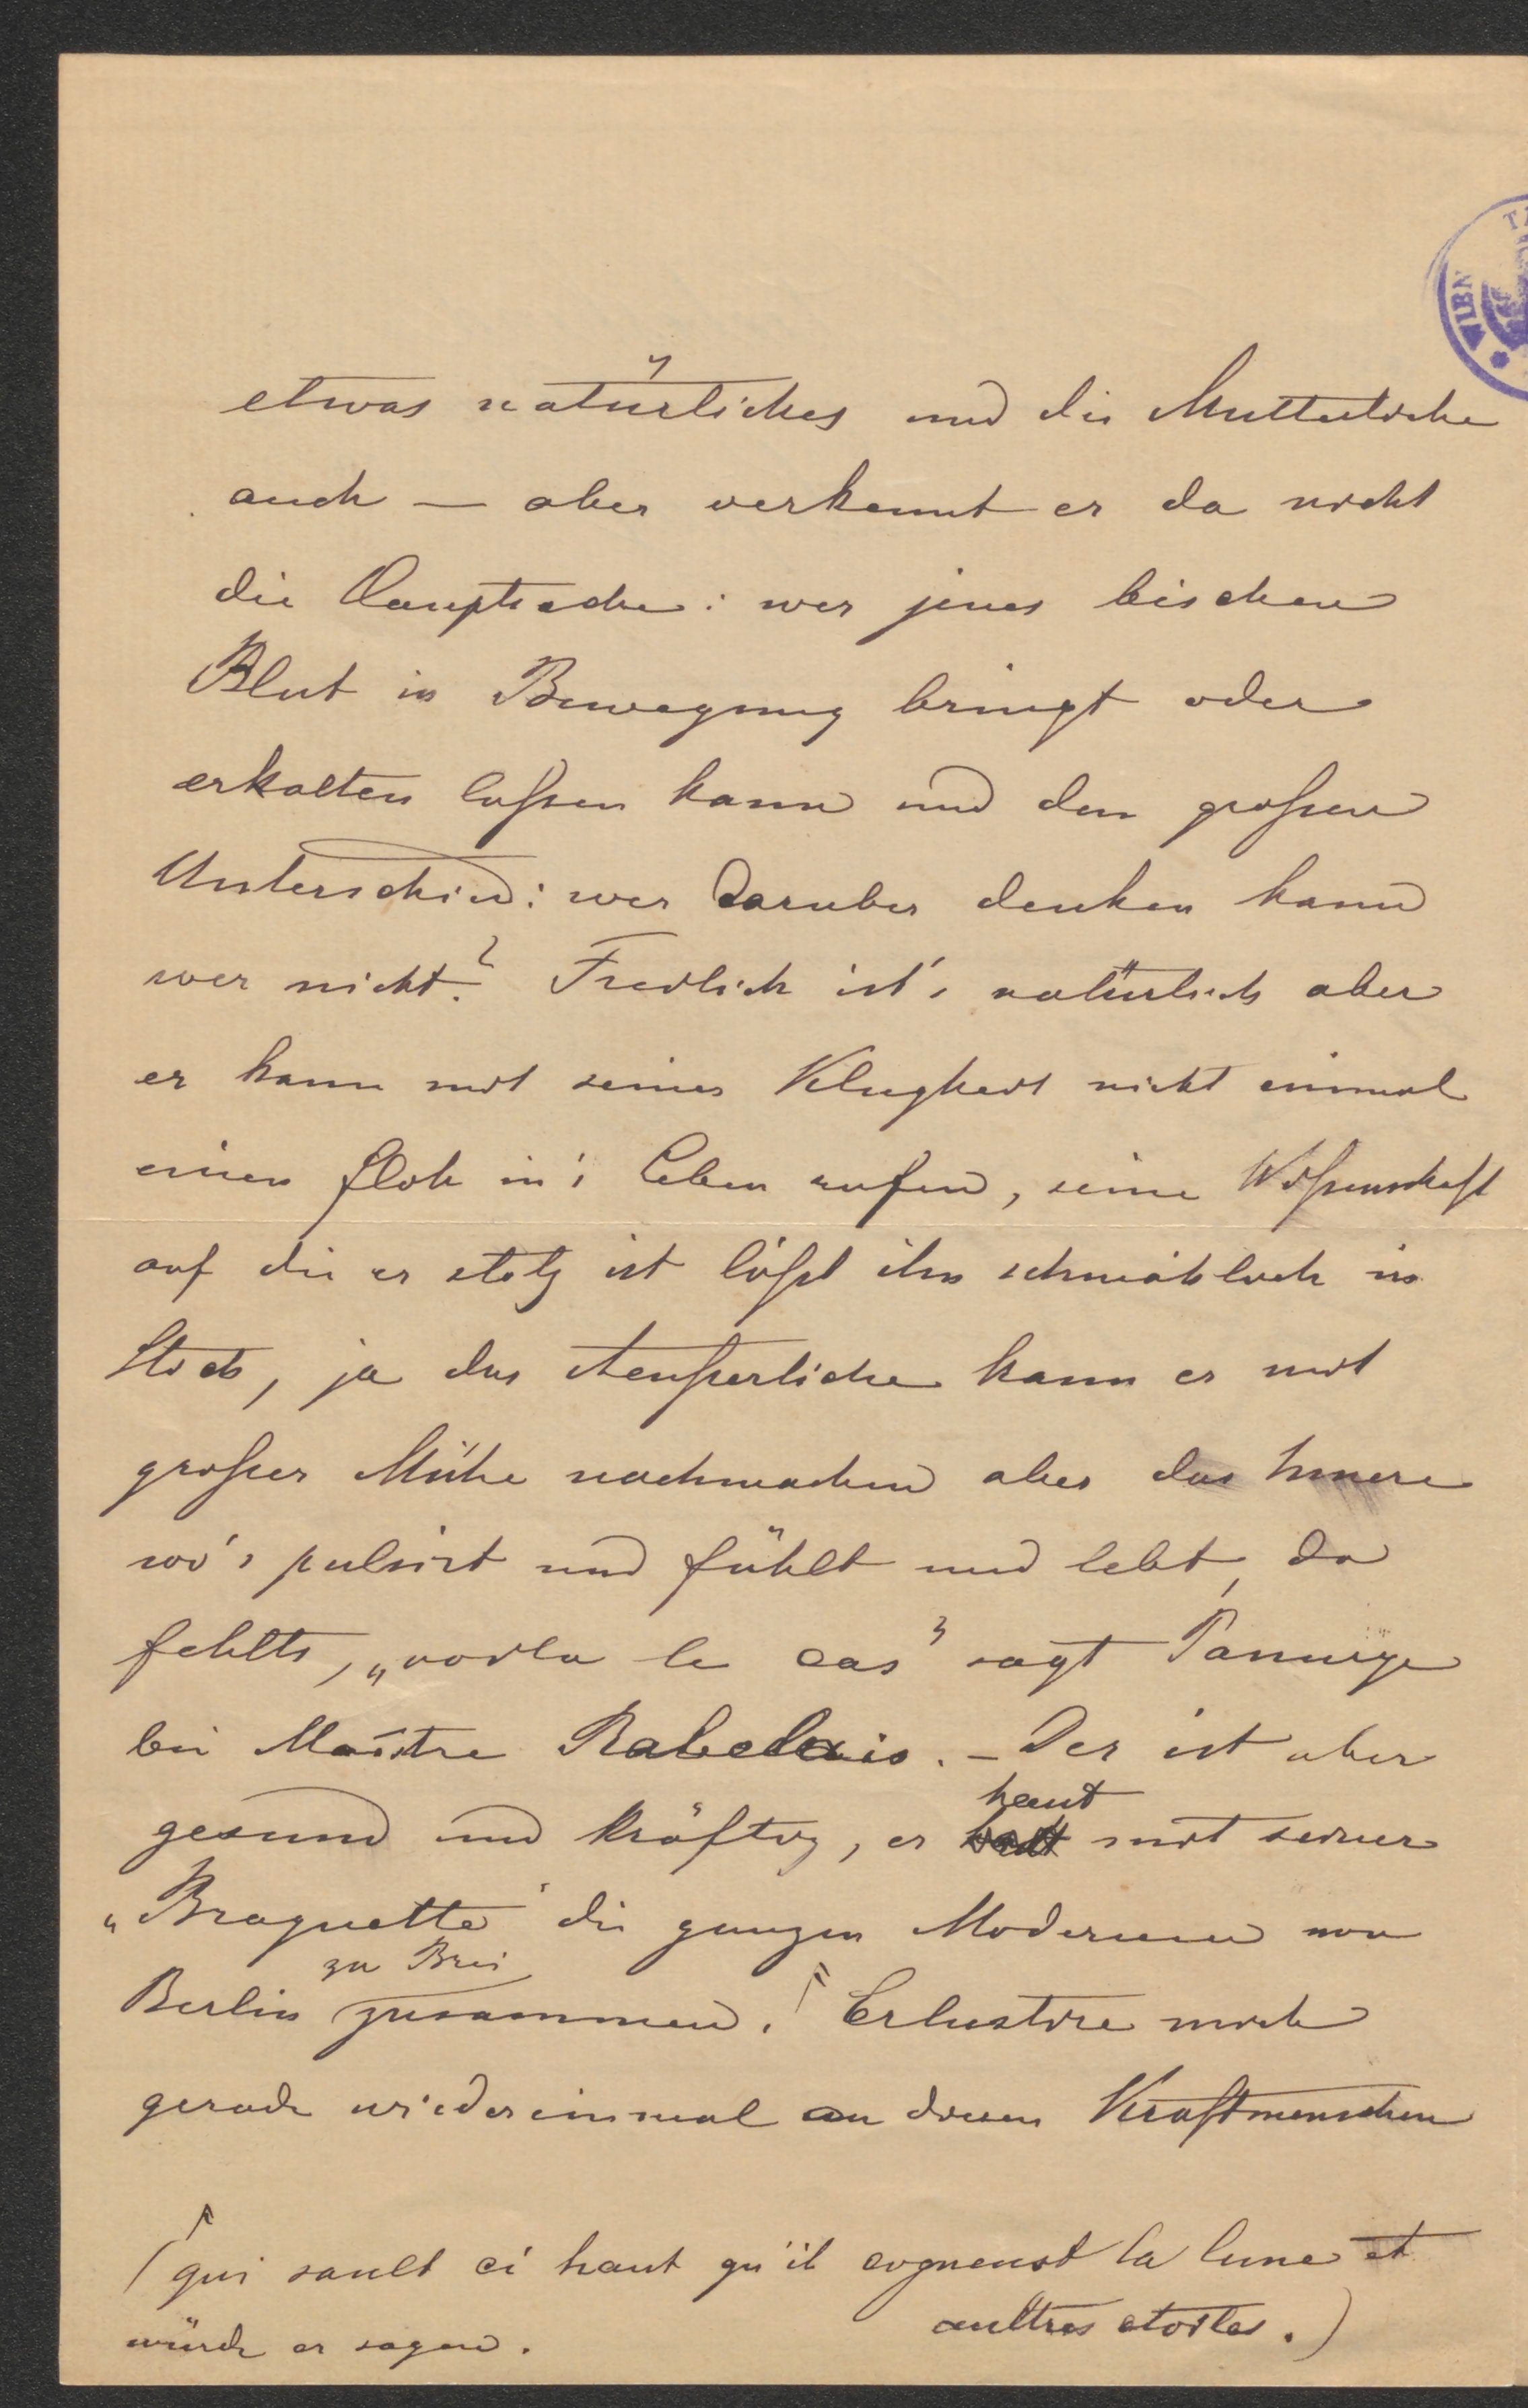 WIEN
etwas natürliches und die Mutterliebe
auch — aber verkennt er da nicht
die Hauptsache: wer jenes bischen
Blut in Bewegung bringt oder
erkalten laßen kann und den großen
Unterschied: wer darüber denken kann
wer nicht? Freilich ist's natürlich aber
er kann mit seiner Klugheit nicht einmal
einen Floh in's Leben rufen, seine Wißenschaft
auf die er stolz ist läßt ihn schmählich in
Stich, ja das Aeußerliche kann er mit
großer Mühe nachmachen aber das Innere
wo's pulsirt und fühlt und lebt, da
fehlts, „voila le cas" sagt Panurge
bei Maistre Rabelais. – Der ist aber
haut
gesund und kräftig, er mit seiner
„Braguette" die ganzen Modernen von
zu Brei
Berlin zusammen. Erlustire mich
gerade wiedereinmal an diesen Kraftmenschen
(qui sault ci hault qu'il cognenst la lune et
aultres etoiles.)
würde er sagen.